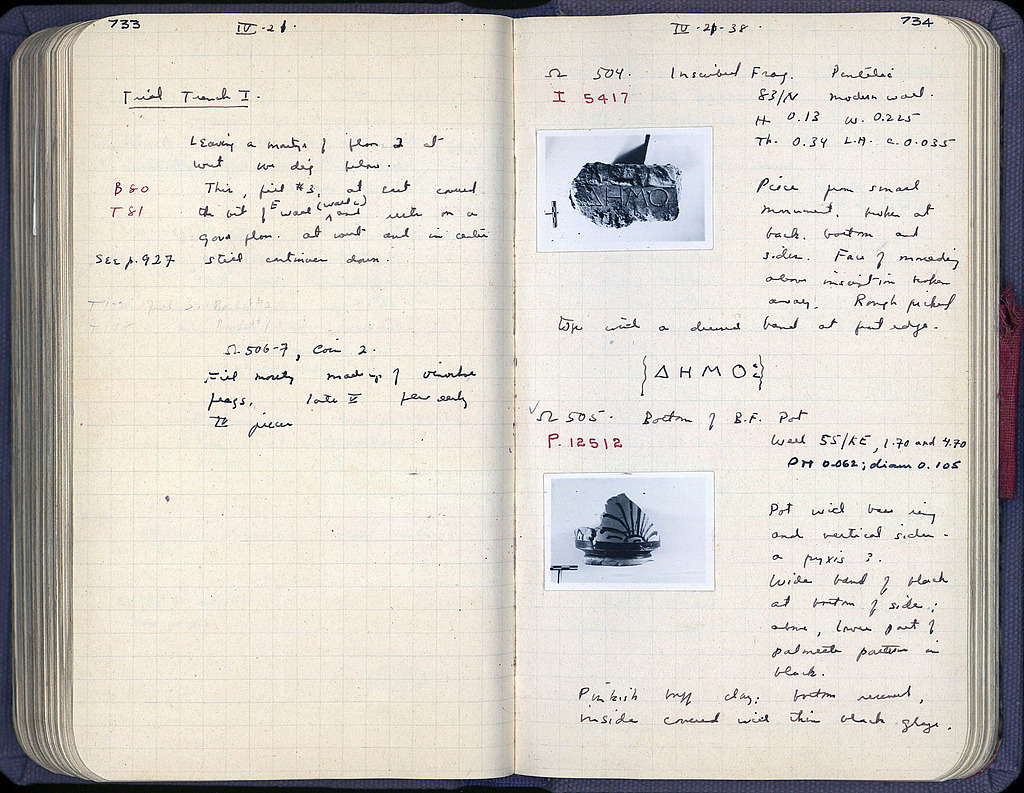 733
IV-21
Trial Trench I.
Leaving a martyr of floor 2 at
west we dig below.
B 80 This, fill #3, at east covered
T 81 the cut of E wall (wall c) and rests on a
good floor. at west and in center
See p. 927 still continues down.
Ω 506-7, Coin 2.
Fill mostly made up of
frags. late V few early
IV pieces
734
IV-21-38.
Ω 504. Inscribed Frag. Pentelic
I 5417 83/N modern wall.
H 0.13 W. 0.225
Th. 0.34 L.H. c. 0.035
Piece from small
monument. broken at
back. bottom and
sides. Face of moulding
above inscription broken
away. Rough picked
top with a dressed band at front edge.
{ΔΗΜΟΣ}
Ω 505. Bottom of B.F. Pot
P. 12512 Well 55/ΚΕ, 1.70 and 4.70
PH 0.062; diam 0.105
Pot with base ring
and vertical sides -
a pyxis?.
Wide band of black
at bottom of side;
above, lower part of
palmette pattern in
black.
Pinkish buff clay; bottom reserved,
inside covered with thin black glaze.